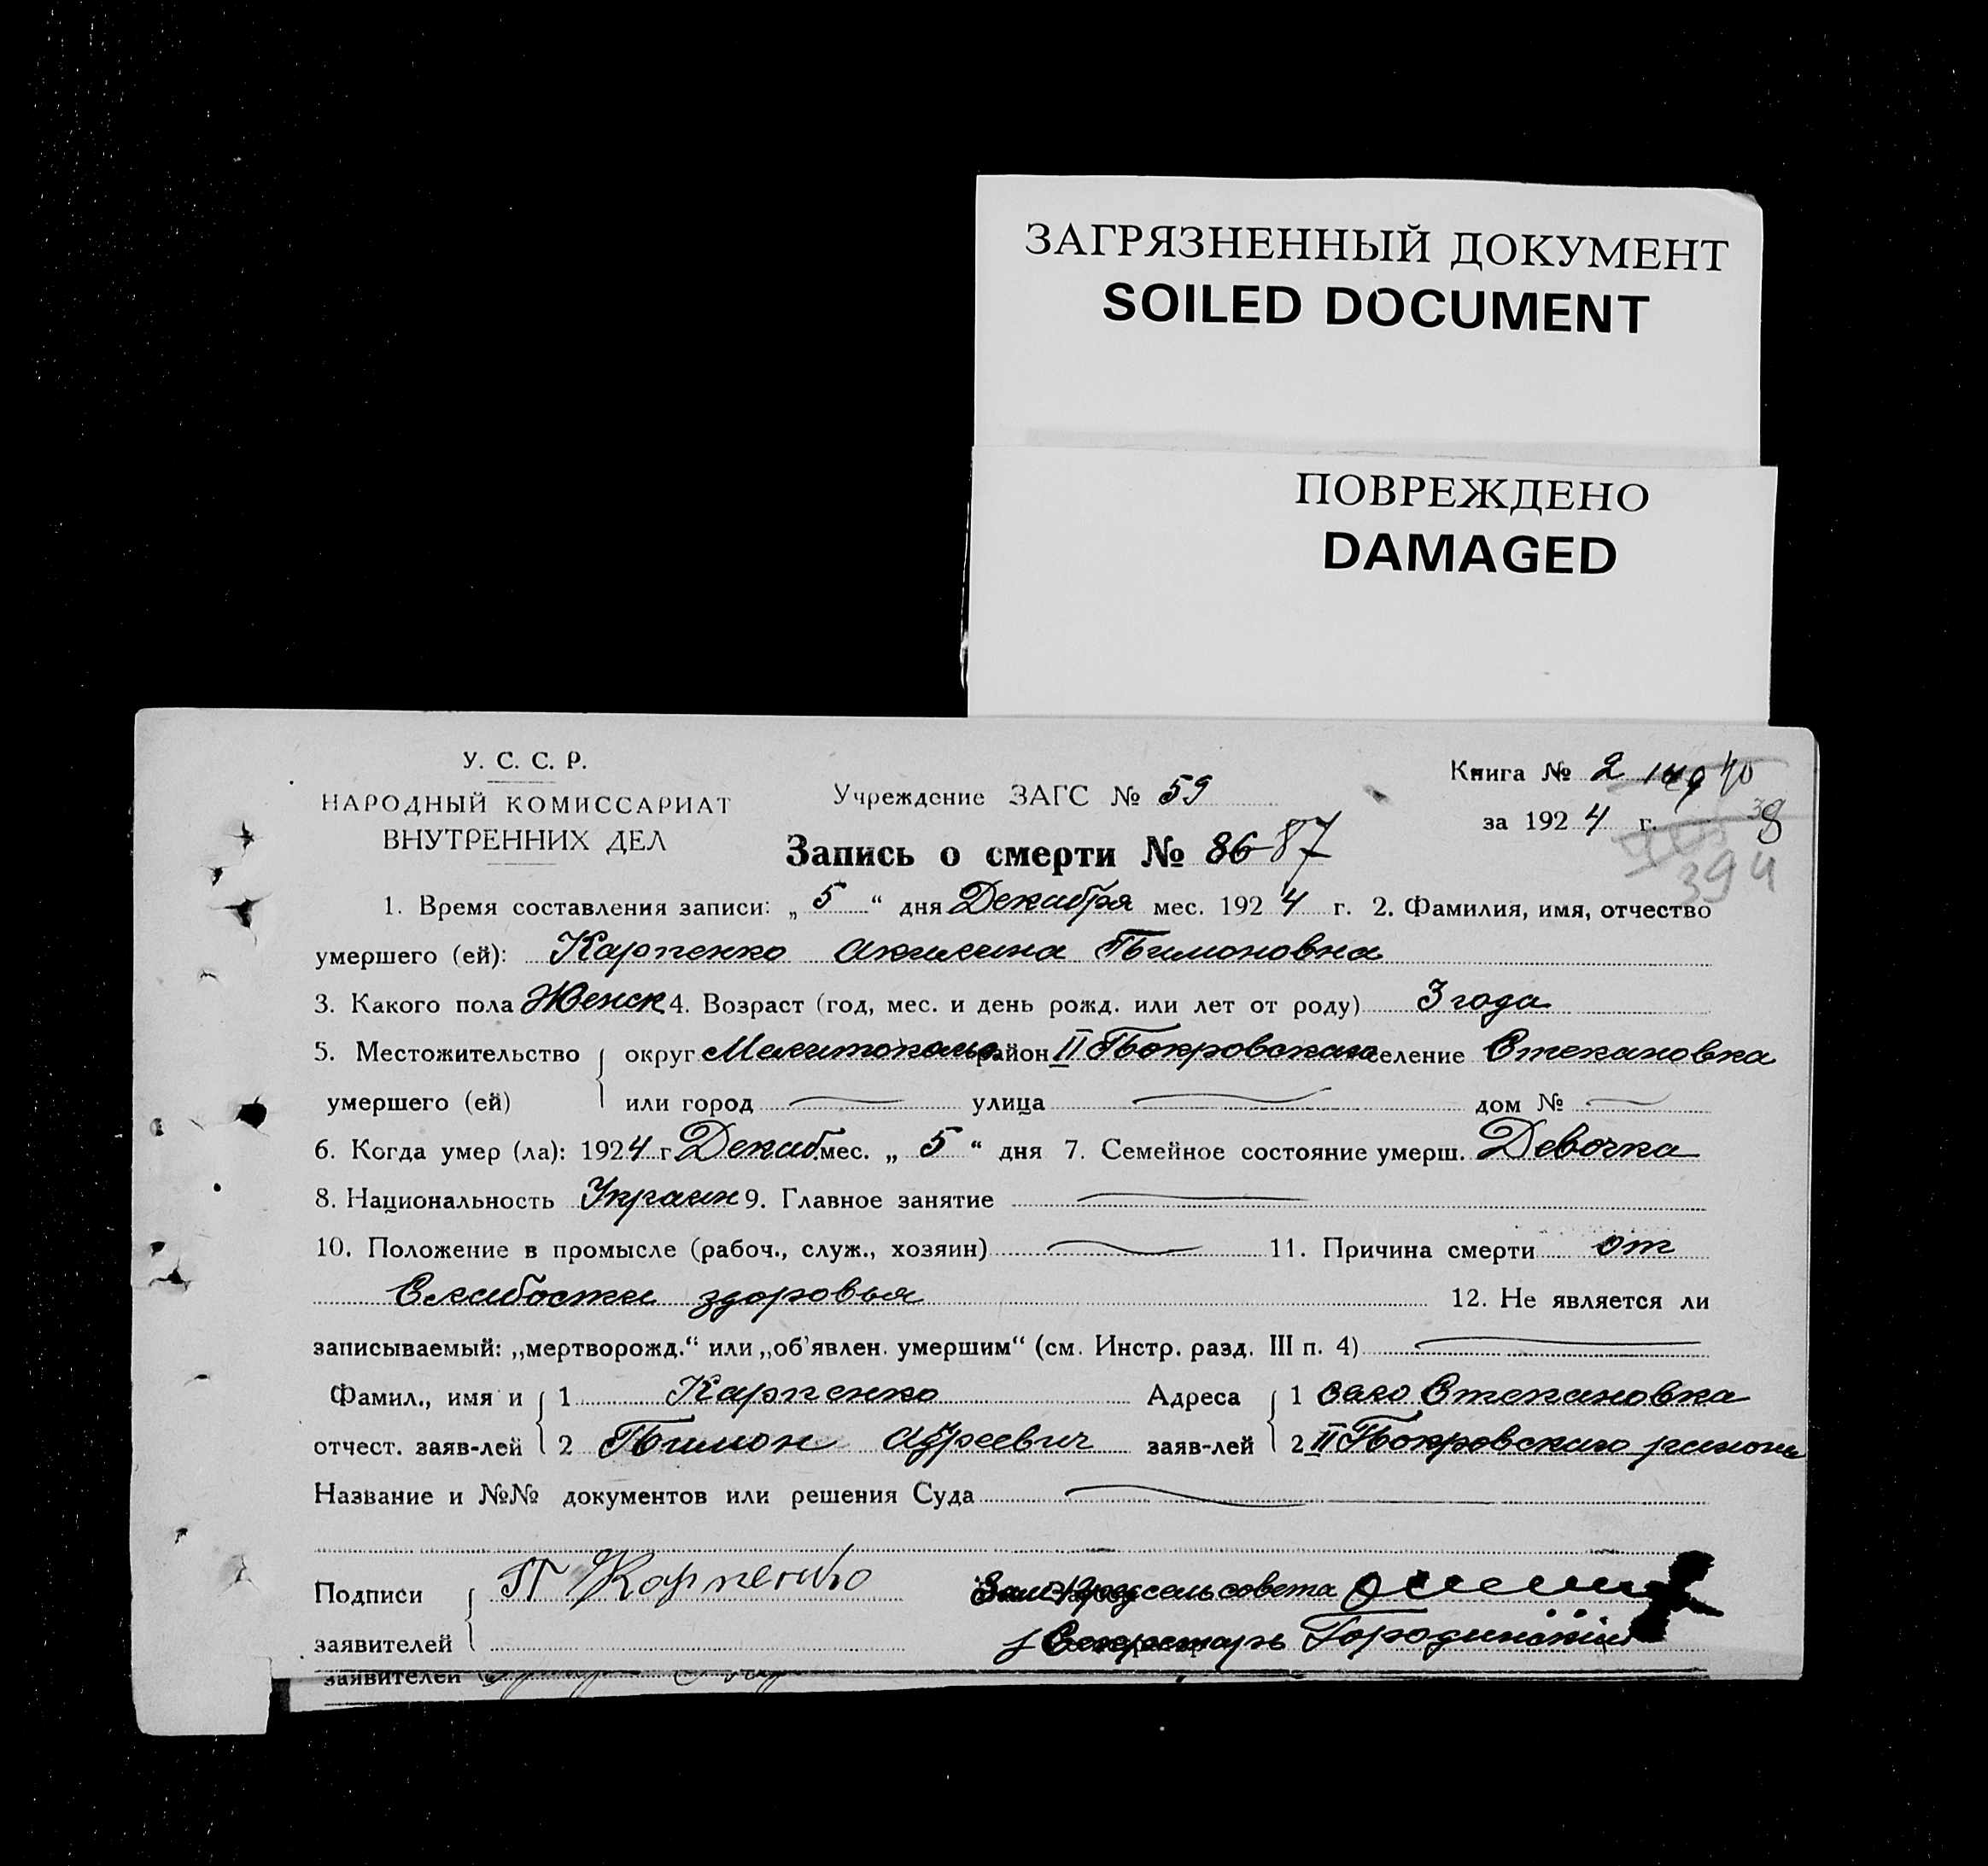 ЗАГРЯЗНЕННЫЙ ДОКУМЕНТ
SOILED DOCUMENT
ПОВРЕЖДЕНО
DAMAGED
У. С. С. Р.
НАРОДНЫЙ КОМИССАРИАТ
ВНУТРЕННИХ ДЕЛ
Учреждение ЗАГС № 59
Книга № 2
за 1924 г.
394
Запись о смерти № 86 87
1. Время составления записи: „5“ дня Декабря мес. 1924 г. 2. Фамилия, имя, отчество
умершего (ей): Карпенко Акилина Пимоновна
3. Какого пола Женск 4. Возраст (год, мес. и день рожд. или лет от роду) 3 года
5. Местожительство округ Мелитополь район II Покровская селение Степановка
умершего (ей) или город улица дом №
6. Когда умер (ла): 1924 г Декаб. мес. „5“ дня 7. Семейное состояние умерш. Девочка
8. Национальность Украин 9. Главное занятие
10. Положение в промысле (рабоч., служ., хозяин) 11. Причина смерти от
Слабости здоровья 12. Не является ли
записываемый: „мертворожд.“ или „об'явлен. умершим“ (см. Инстр. разд. III п. 4)
Фамил., имя и 1 Карпенко Адреса 1 Село Степановка
отчест. заяв-лей 2 Пимон Адреевич заяв-лей 2 II Покровского района
Название и №№ документов или решения Суда
Подписи П Карпенко Зам Пред сельсовета
заявителей Секретарь Городинский
заявителей